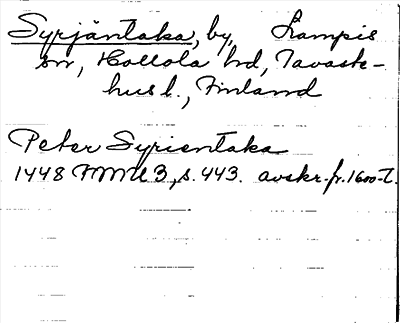 Syrjäntaka, by, Lampis
sn, Hollola hd, Tavaste-
hus l., Finland
Peter Syrientaka
1448 FMU 3, s. 443. avskr. fr. 1600-t.